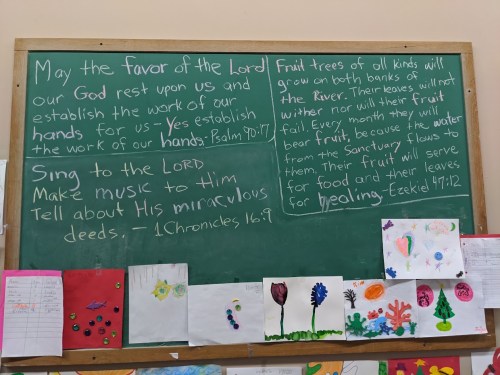 May the favor of the Lord
our God rest upon us and
establish the work of our
hands for us - Yes establish
the work of our hands - Psalm 90:17
Sing to the LORD
Make music to Him
Tell about His miraculous
deeds. - 1 Chronicles 16:9
Fruit trees of all kinds will
grow on both banks of
the River. Their leaves will not
wither nor will their fruit
fail. Every month they will
bear fruit, because the water
from the Sanctuary flows to
them. Their fruit will serve
for food and their leaves
for healing - Ezekiel 47:12